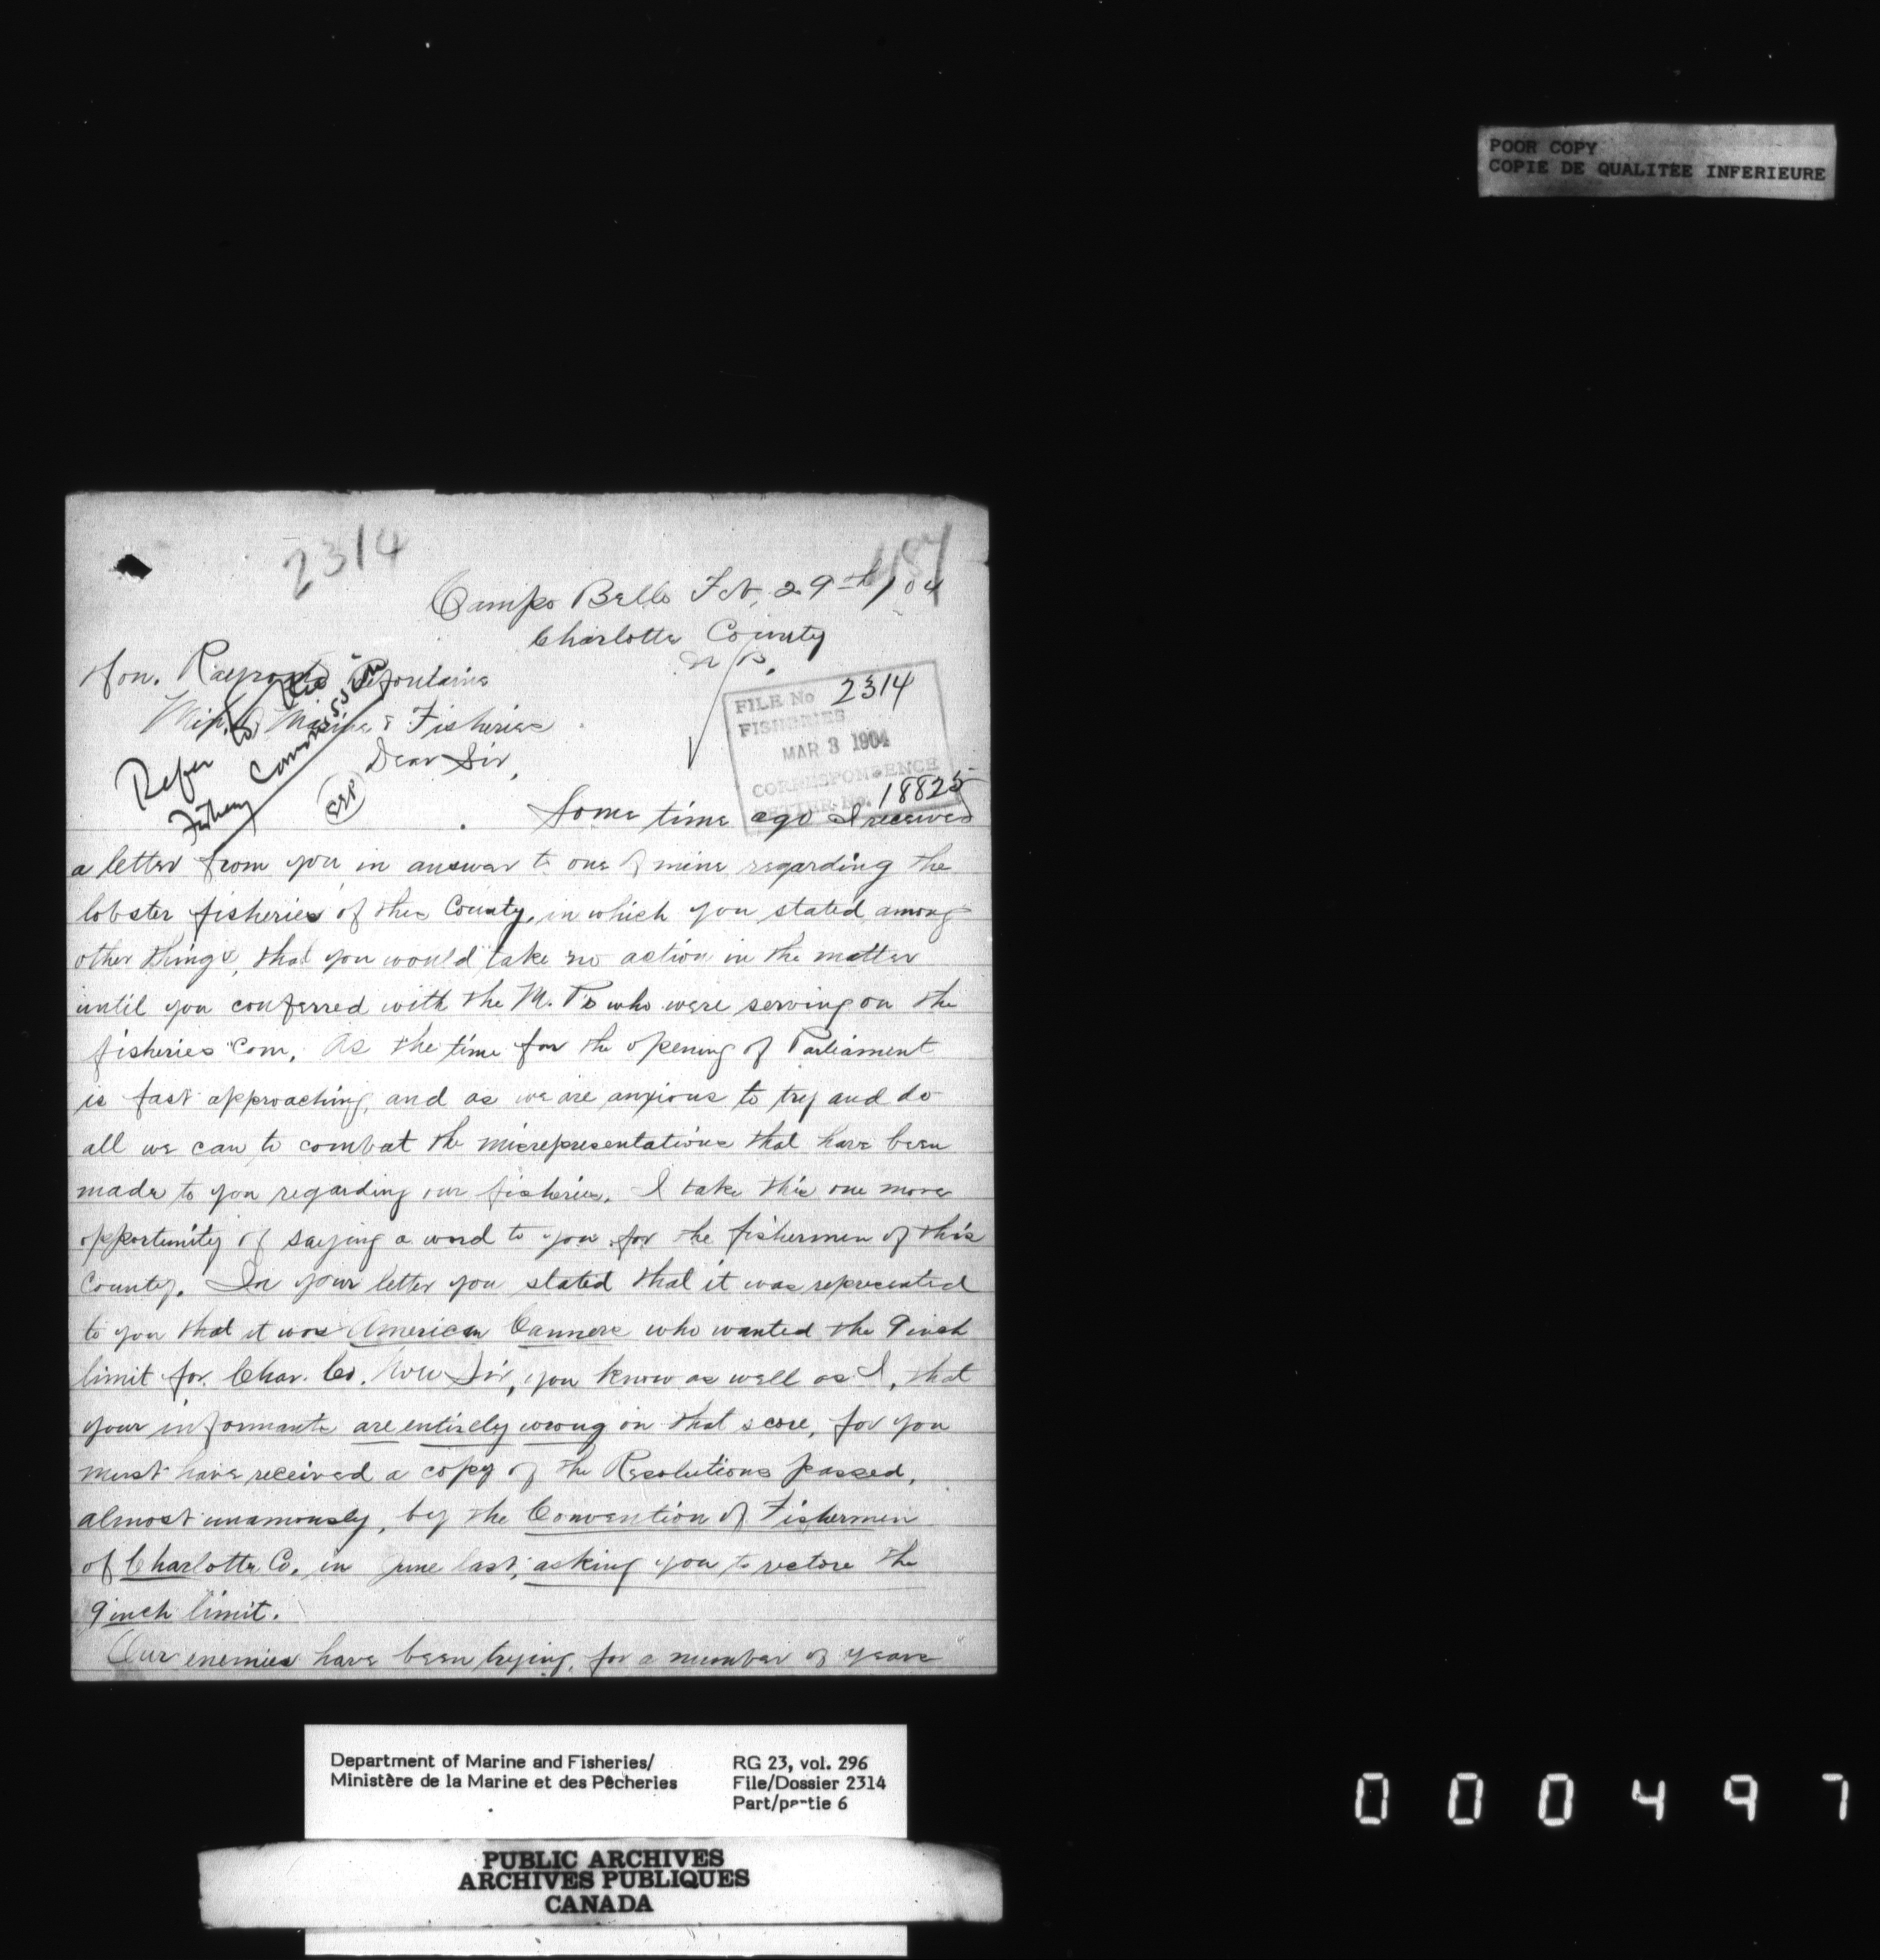 POOR COPY
COPIE DE QUALITEE INFERIEURE
2314
487
Campo Bello Feb. 29th / 04
Charlotte County
N B.
Hon. Raymond Prefontaine
Min. of Marine & Fisheries
Dear Sir,
Refer to the
Fishery Commission
FILE No 2314
FISHERIES
MAR 3 1904
CORRESPONDENCE
LETTER No. 18825
Some time ago I received
a letter from you in answer to one of mine regarding the
lobster fisheries of this County, in which you stated, among
other things, that you would take no action in the matter
until you conferred with the M. P's who were serving on the
fisheries Com. As the time for the opening of Parliament
is fast approaching, and as we are anxious to try and do
all we can to combat the misrepresentations that have been
made to you regarding our fisheries, I take this one more
opportunity of saying a word to you for the fishermen of this
County. In your letter you stated that it was represented
to you that it was American Canners who wanted the 9 inch
limit for Char. Co. Now Sir, you know as well as I, that
your informants are entirely wrong on that score, for you
must have received a copy of the Resolutions passed,
almost unamously, by the Convention of Fishermen
of Charlotte Co. in June last, asking you to restore the
9 inch limit.
Our enemies have been trying, for a number of years
Department of Marine and Fisheries/
Ministère de la Marine et des Pêcheries
RG 23, vol. 296
File/Dossier 2314
Part/partie 6
PUBLIC ARCHIVES
ARCHIVES PUBLIQUES
CANADA
000497